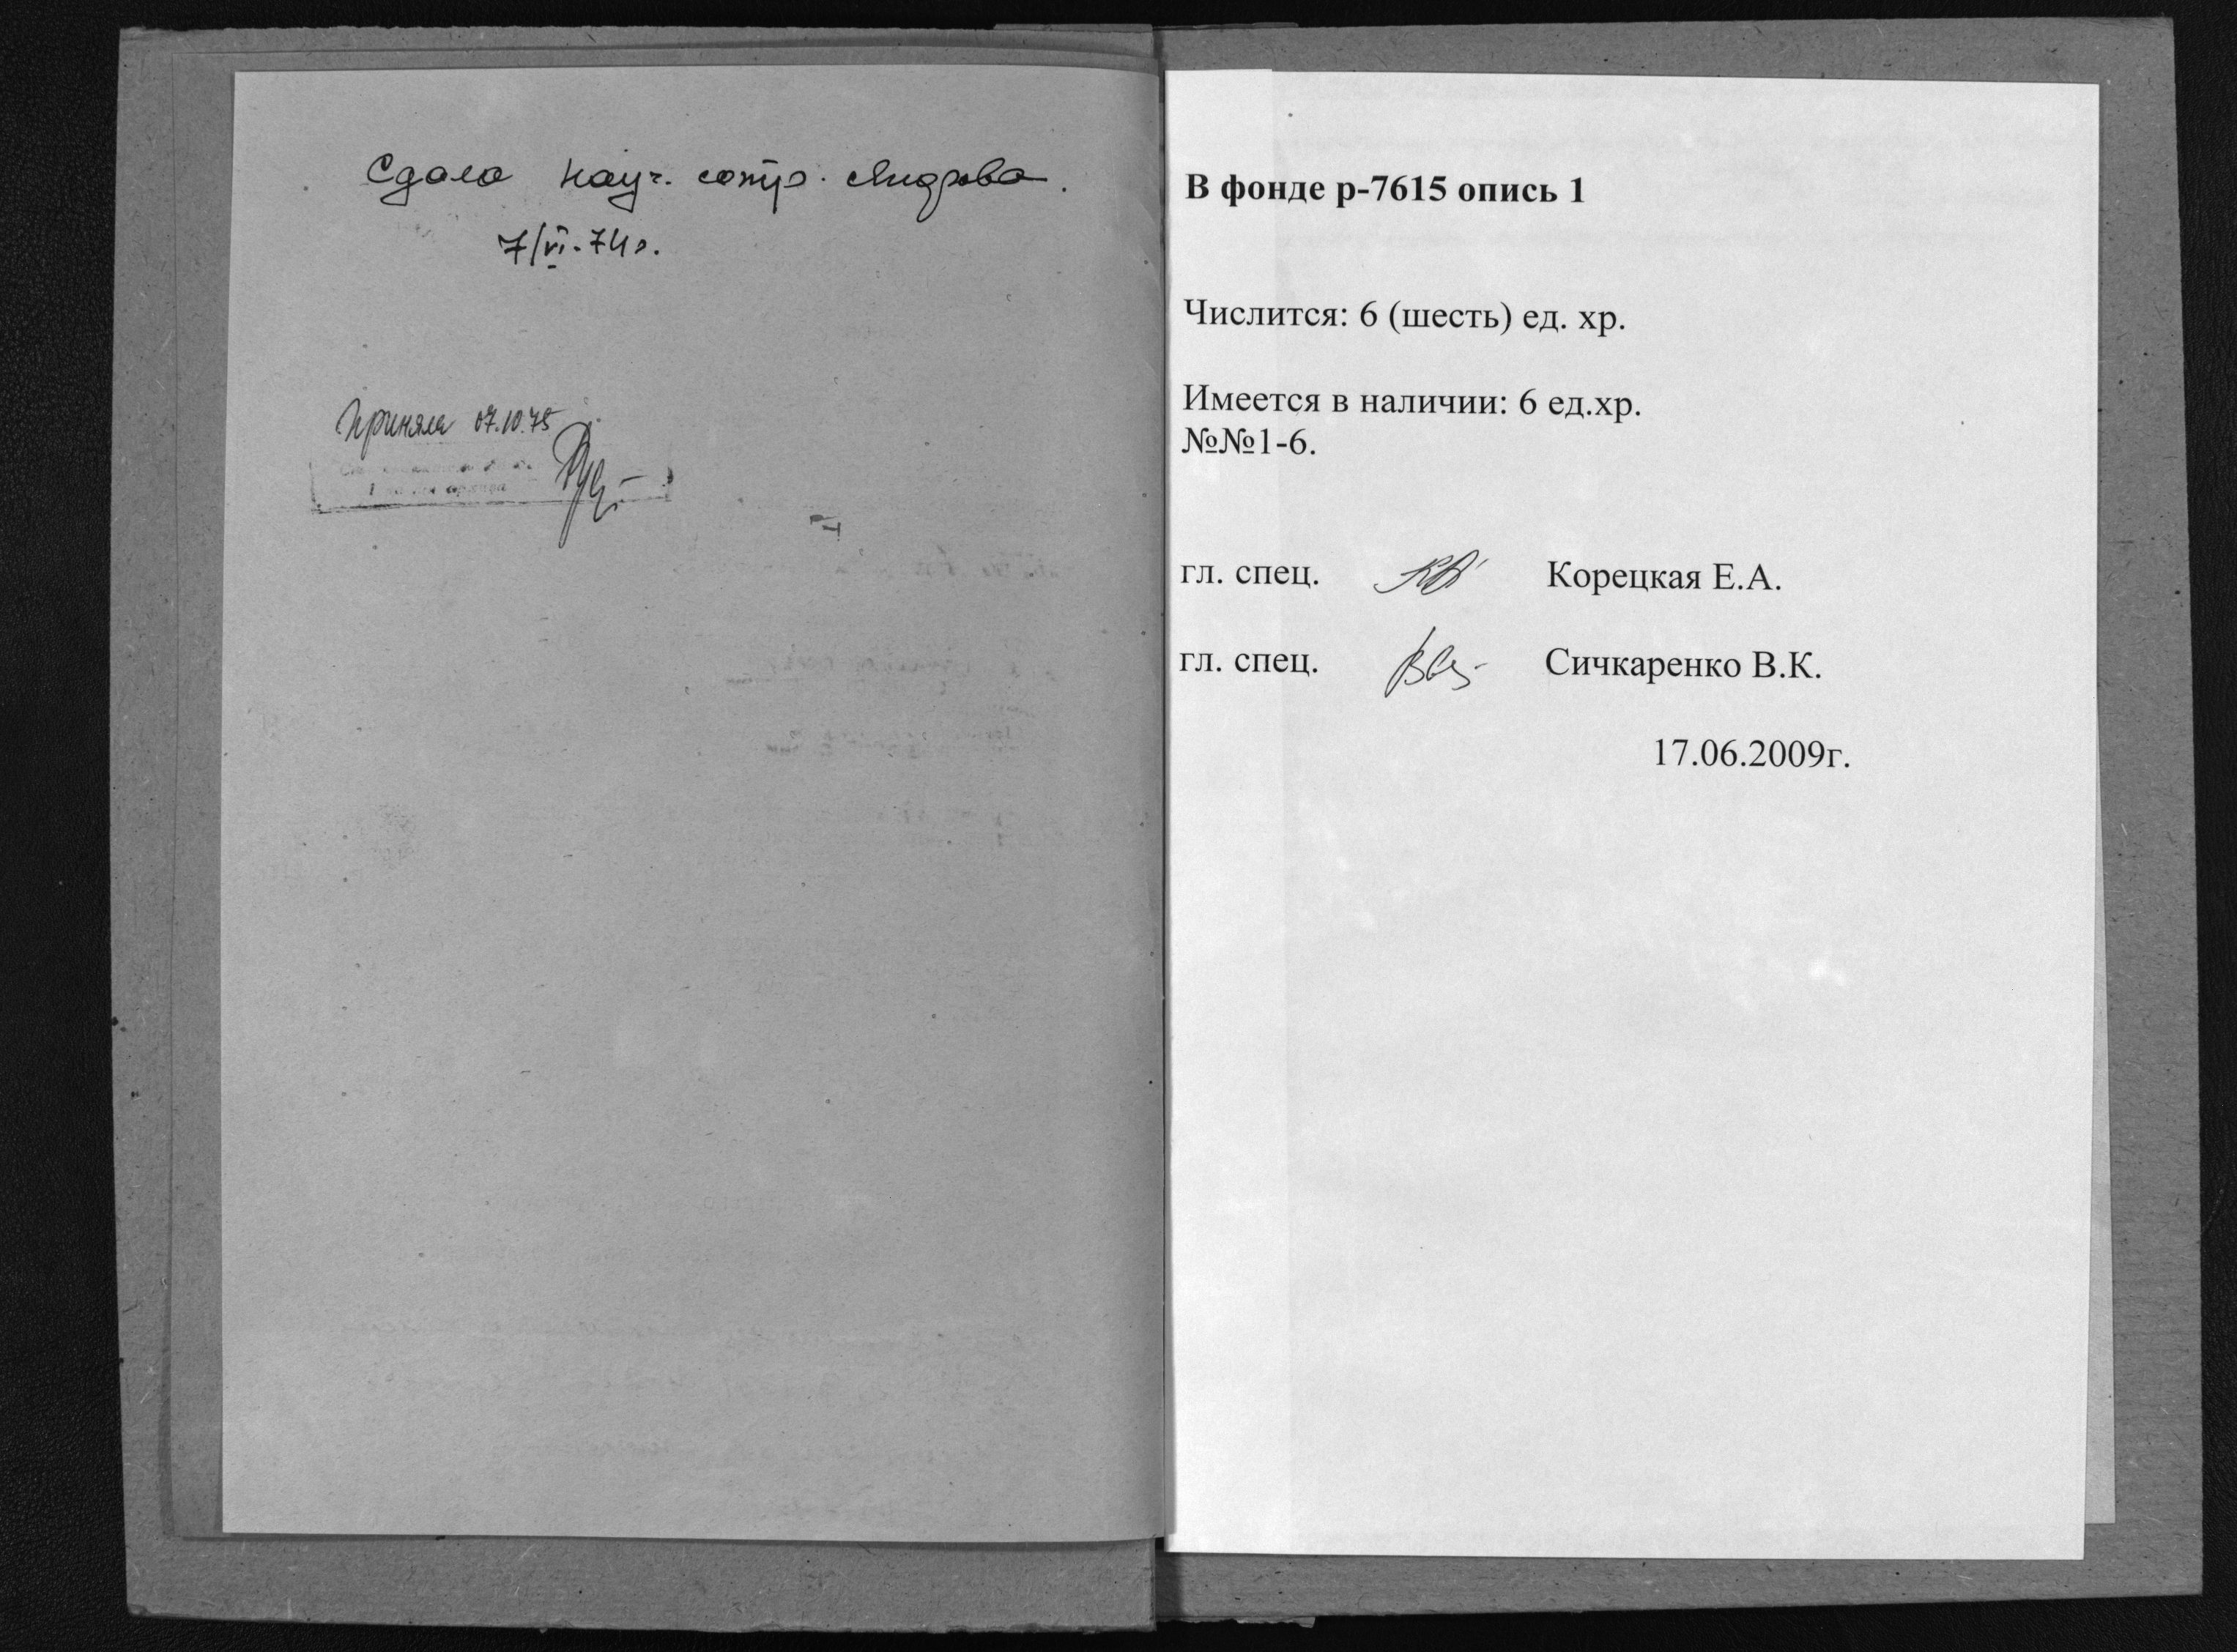 Сдала науч. сотр.
7/VI-74г.
Приняла 07.10.75
В фонде р-7615 опись 1
Числится: 6 (шесть) ед. хр.
Имеется в наличии: 6 ед.хр.
№№1-6.
гл. спец. Корецкая Е.А.
гл. спец. Сичкаренко В.К.
17.06.2009г.